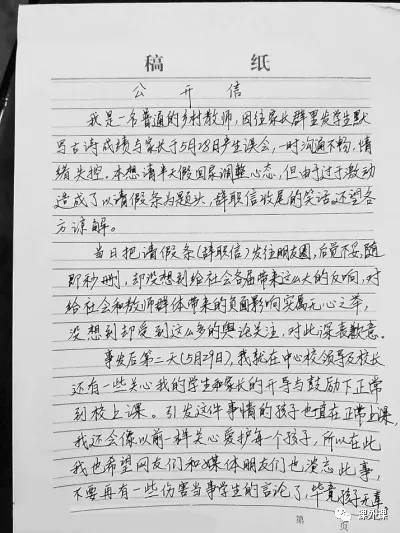 稿 纸
公开信
我是一名普通的乡村教师,因往家长群里发学生默
写古诗成绩与家长于5月28日产生误会,一时沟通不畅,情
绪失控。本想请半天假回家调整心态,但由于过于激动
造成了以请假条为题头,辞职信收尾的笑话。还望各
方谅解。
当日把请假条(辞职信)发往朋友圈,后觉不妥,随
即秒删,却没想到给社会各届带来这么大的反响,对
给社会和教师群体带来的负面影响实属无心之举,
没想到却受到这么多的舆论关注,对此深表歉意。
事发后第二天(5月29日),我就在中心校领导及校长
还有一些关心我的学生和家长的开导与鼓励下正常
到校上课。引发这件事情的孩子也一直在正常上课,
我还会像以前一样关心爱护每个孩子,所以在此
我也希望网友们和媒体朋友们也淡忘此事,
不要再有一些伤害当事学生的言论了,毕竟孩子无辜
第 页
课外课